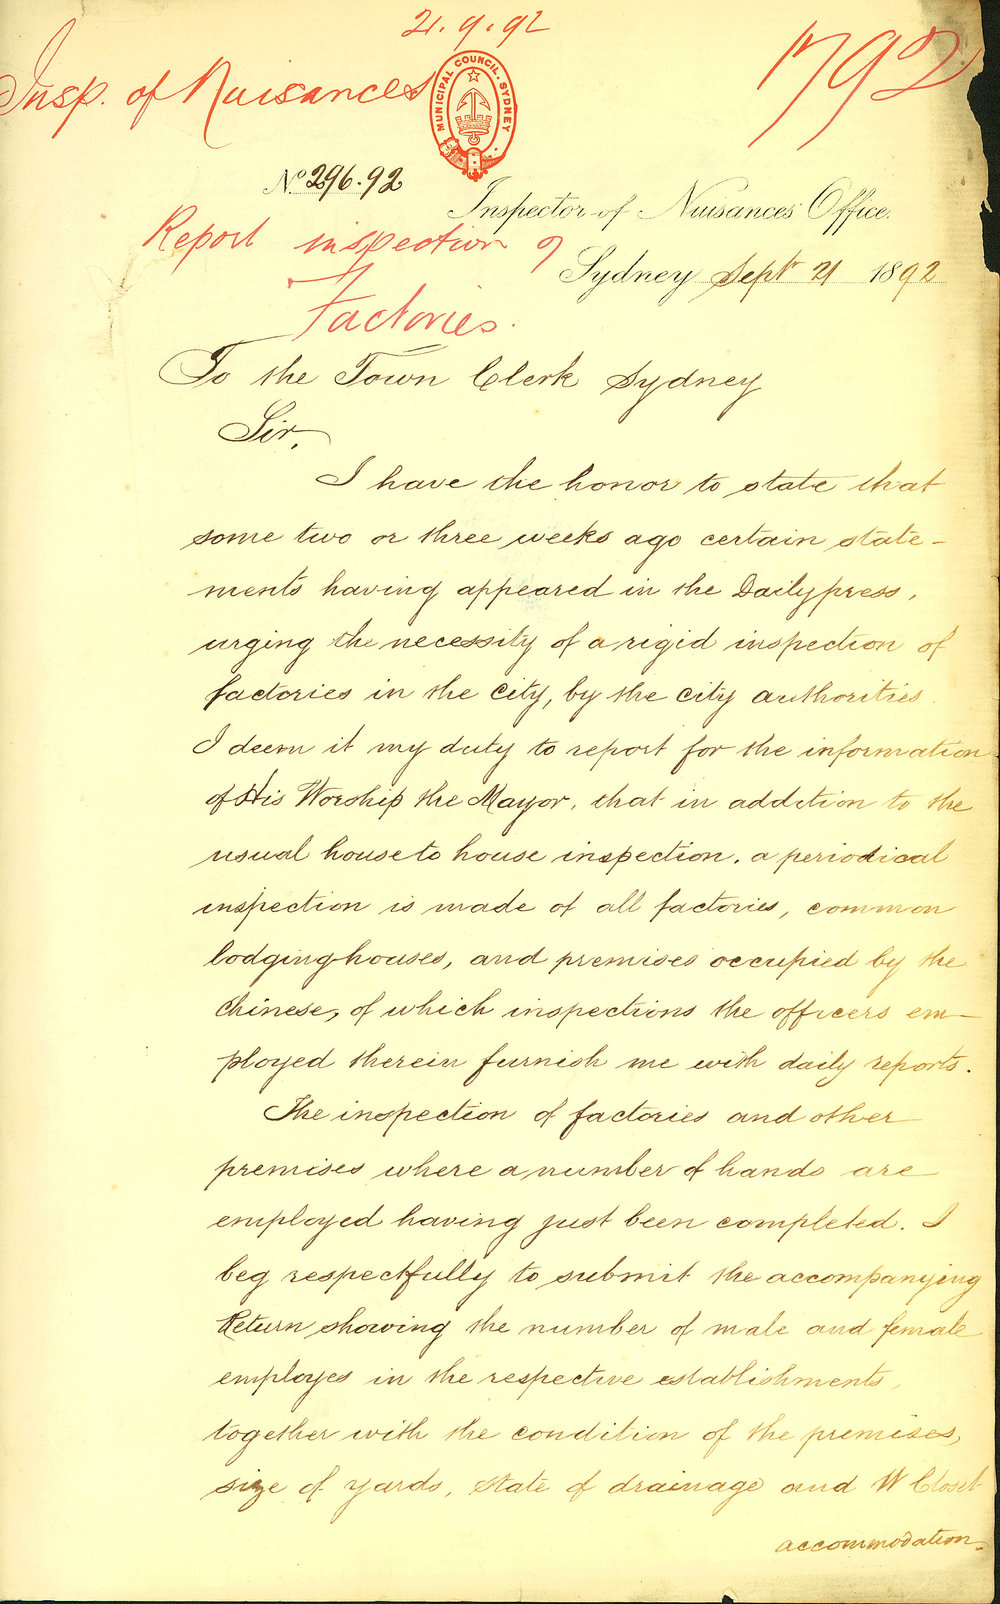 21.9.92
Insp. of Nuisances
1792
MUNICIPAL COUNCIL. SYDNEY
No 296.92
Inspector of Nuisances Office.
Report inspection of
Sydney Sept 21 1892
Factories.
To the Town Clerk Sydney
Sir,
I have the honor to state that
some two or three weeks ago certain state-
ments having appeared in the Daily press,
urging the necessity of a rigid inspection of
factories in the city, by the city authorities.
I deem it my duty to report for the information
of His Worship the Mayor, that in addition to the
usual house to house inspection, a periodical
inspection is made of all factories, common
lodging houses, and premises occupied by the
Chinese, of which inspections the officers em-
ployed therein furnish me with daily reports.
The inspection of factories and other
premises where a number of hands are
employed having just been completed. I
beg respectfully to submit the accompanying
Return showing the number of male and female
employes in the respective establishments,
together with the condition of the premises,
size of yards, state of drainage and W Closet
accommodation.